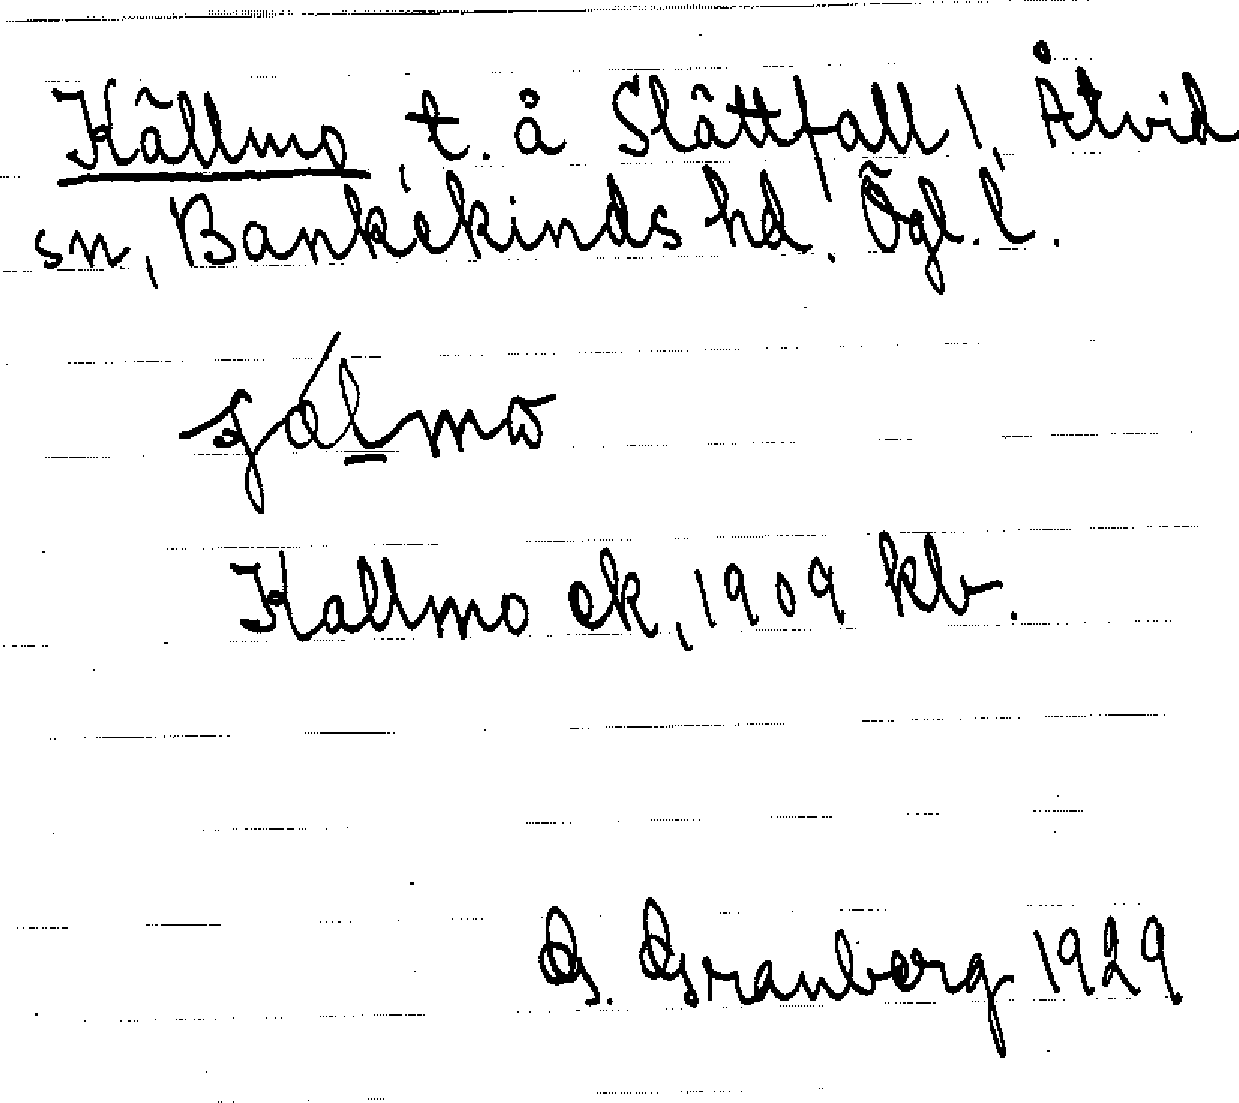 Källmo, t. å Slättfall 1, Åtvid
sn, Bankekinds hd. Ögl. l.
Kallmo ek, 1909 kb.
G. Granberg 1929